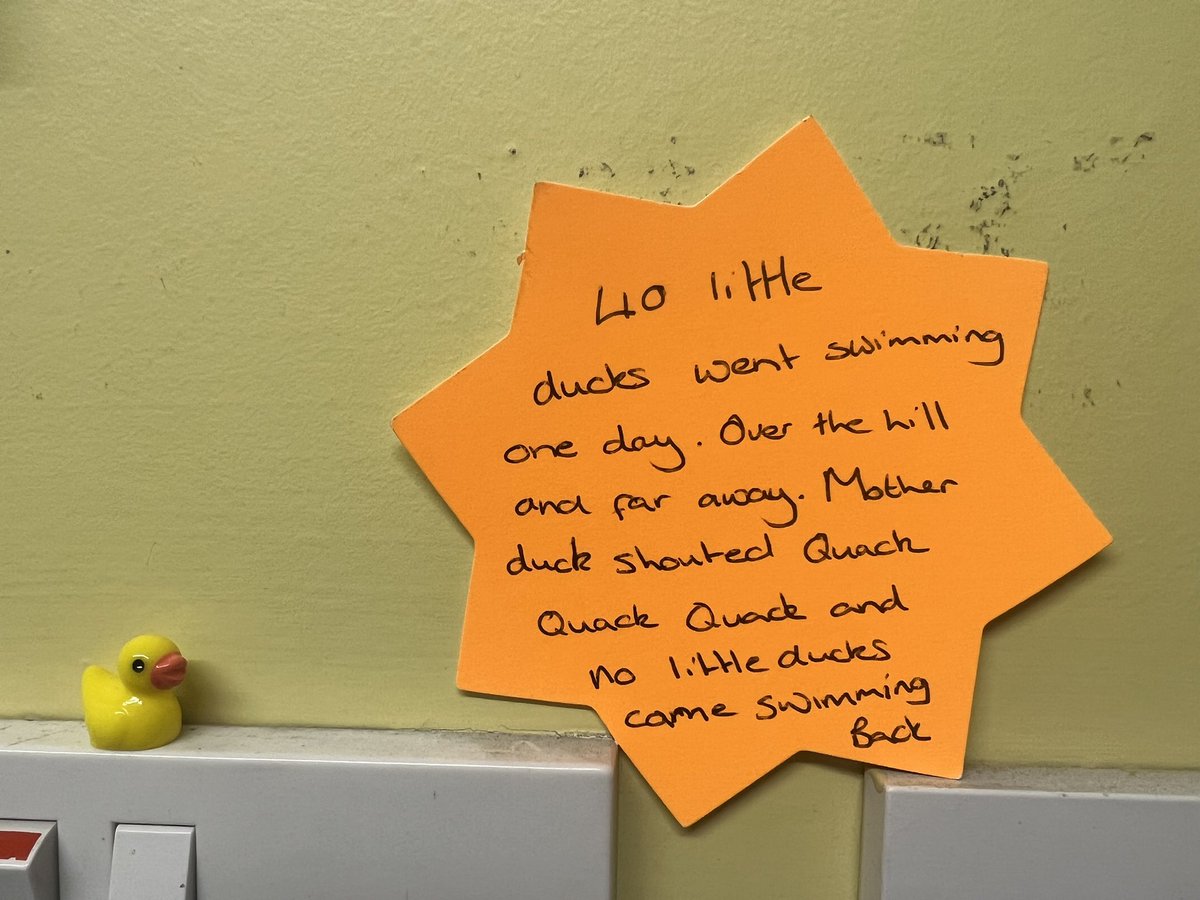 40 little
ducks went swimming
one day. Over the hill
and far away. Mother
duck shouted Quack
Quack Quack and
no little ducks
came swimming
Back